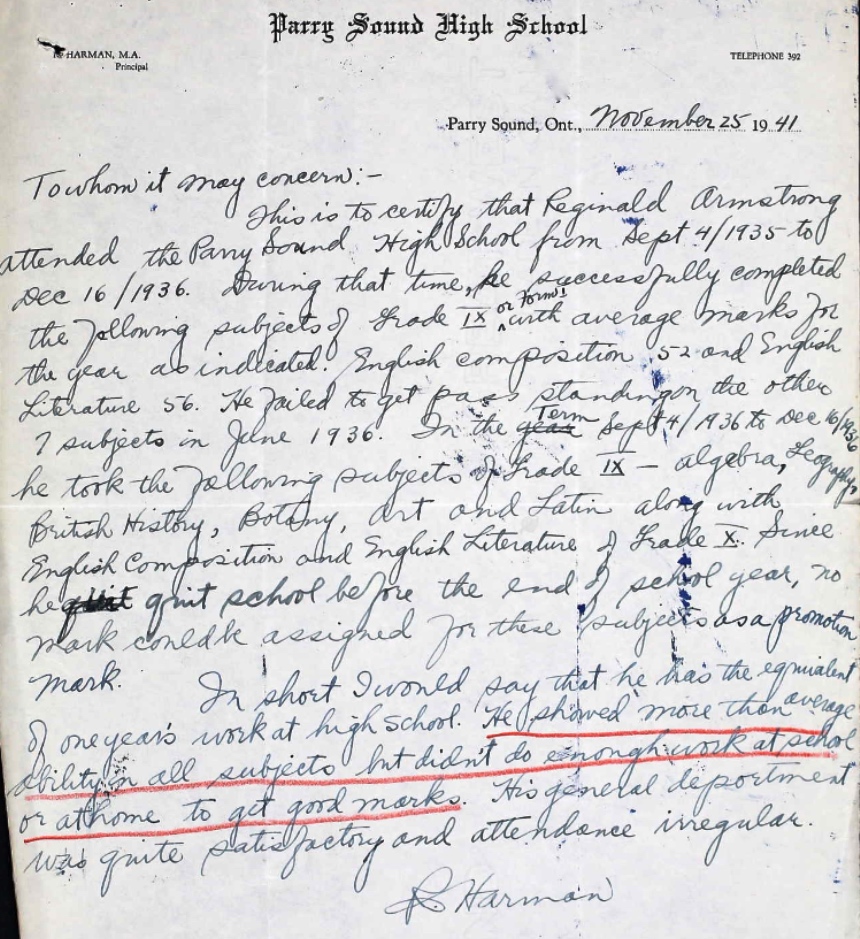 Parry Sound High School
HARMAN, M.A.
Principal
TELEPHONE 392
Parry Sound, Ont., November 25 19 41
To whom it may concern:-
This is to certify that Reginald Armstrong
attended the Parry Sound High School from Sept 4/1935 to
Dec 16/1936. During that time, he successfully completed
the following subjects of Grade IX or Form I with average marks for
the year as indicated. English composition 52 and English
Literature 56. He failed to get pass standing on the other
7 subjects in June 1936. In the year Term Sept 4/1936 to Dec 16/1936
he took the following subjects of Grade IX — algebra, Geography,
British History, Botany, Art and Latin along with
English Composition and English Literature of Grade X. Since
he quit quit school before the end of school year, no
mark could be assigned for these subjects as a promotion
mark. In short I would say that he has the equivalent
of one year's work at high school. He showed more than average
ability in all subjects but didn't do enough work at school
or at home to get good marks. His general department
was quite satisfactory and attendance irregular.
Harman